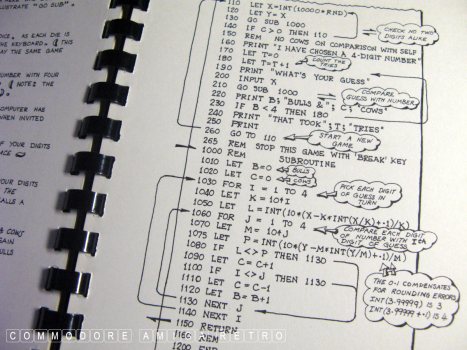 LLUSTRATE "GO SUB"
DICE, AS EACH DIE IS
THE KEYBOARD. THIS
MAY THE SAME WAY.
NUMBER WITH FOUR
NOTE: THE
COMPUTER HAS
WHEN INVITED
OF YOUR DIGITS
PLACE
YOUR DIGITS
THE
CALLS A
COWS
GAIN
BULLS
110 LET X=INT(10000*RND)
120 LET Y=X
130 GO SUB 1000
140 IF C>0 THEN 110
150 REM NO COWS ON COMPARISON WITH SELF
160 PRINT "I HAVE CHOSEN A 4-DIGIT NUMBER"
170 LET T=0
180 LET T=T+1
190 PRINT "WHAT'S YOUR GUESS"
200 INPUT X
210 GO SUB 1000
220 PRINT B; "BULLS &"; C; "COWS"
230 IF B<4 THEN 180
240 PRINT "THAT TOOK"; T; "TRIES"
250 PRINT
260 GO TO 110
265 REM STOP THIS GAME WITH 'BREAK' KEY
1000 REM SUBROUTINE
1010 LET B=0
1020 LET C=0
1030 FOR I = 1 TO 4
1040 LET K = 10↑I
1050 LET L = INT(10*(X-K*INT(X/K)+.1)/K)
1060 FOR J = 1 TO 4
1070 LET M = 10↑J
1075 LET P = INT(10*(Y-M*INT(Y/M)+.1)/M)
1080 IF L<>P THEN 1130
1090 LET C=C+1
1100 IF I<>J THEN 1130
1110 LET C=C-1
1120 LET B=B+1
1130 NEXT J
1140 NEXT I
1150 RETURN
1160 REM
1200 END
CHECK NO TWO
DIGITS ALIKE
COUNT THE
TRIES
COMPARE
GUESS WITH NUMBER
START A NEW
GAME
BULLS
COWS
PICK EACH DIGIT
OF GUESS
IN TURN
COMPARE EACH DIGIT
OF NUMBER WITH Ith
DIGIT OF GUESS
THE 0.1 COMPENSATES
FOR ROUNDING ERRORS
INT(3.99999) IS 3
INT(3.99999+.1) IS 4
COMMODORE AMIGA RETRO